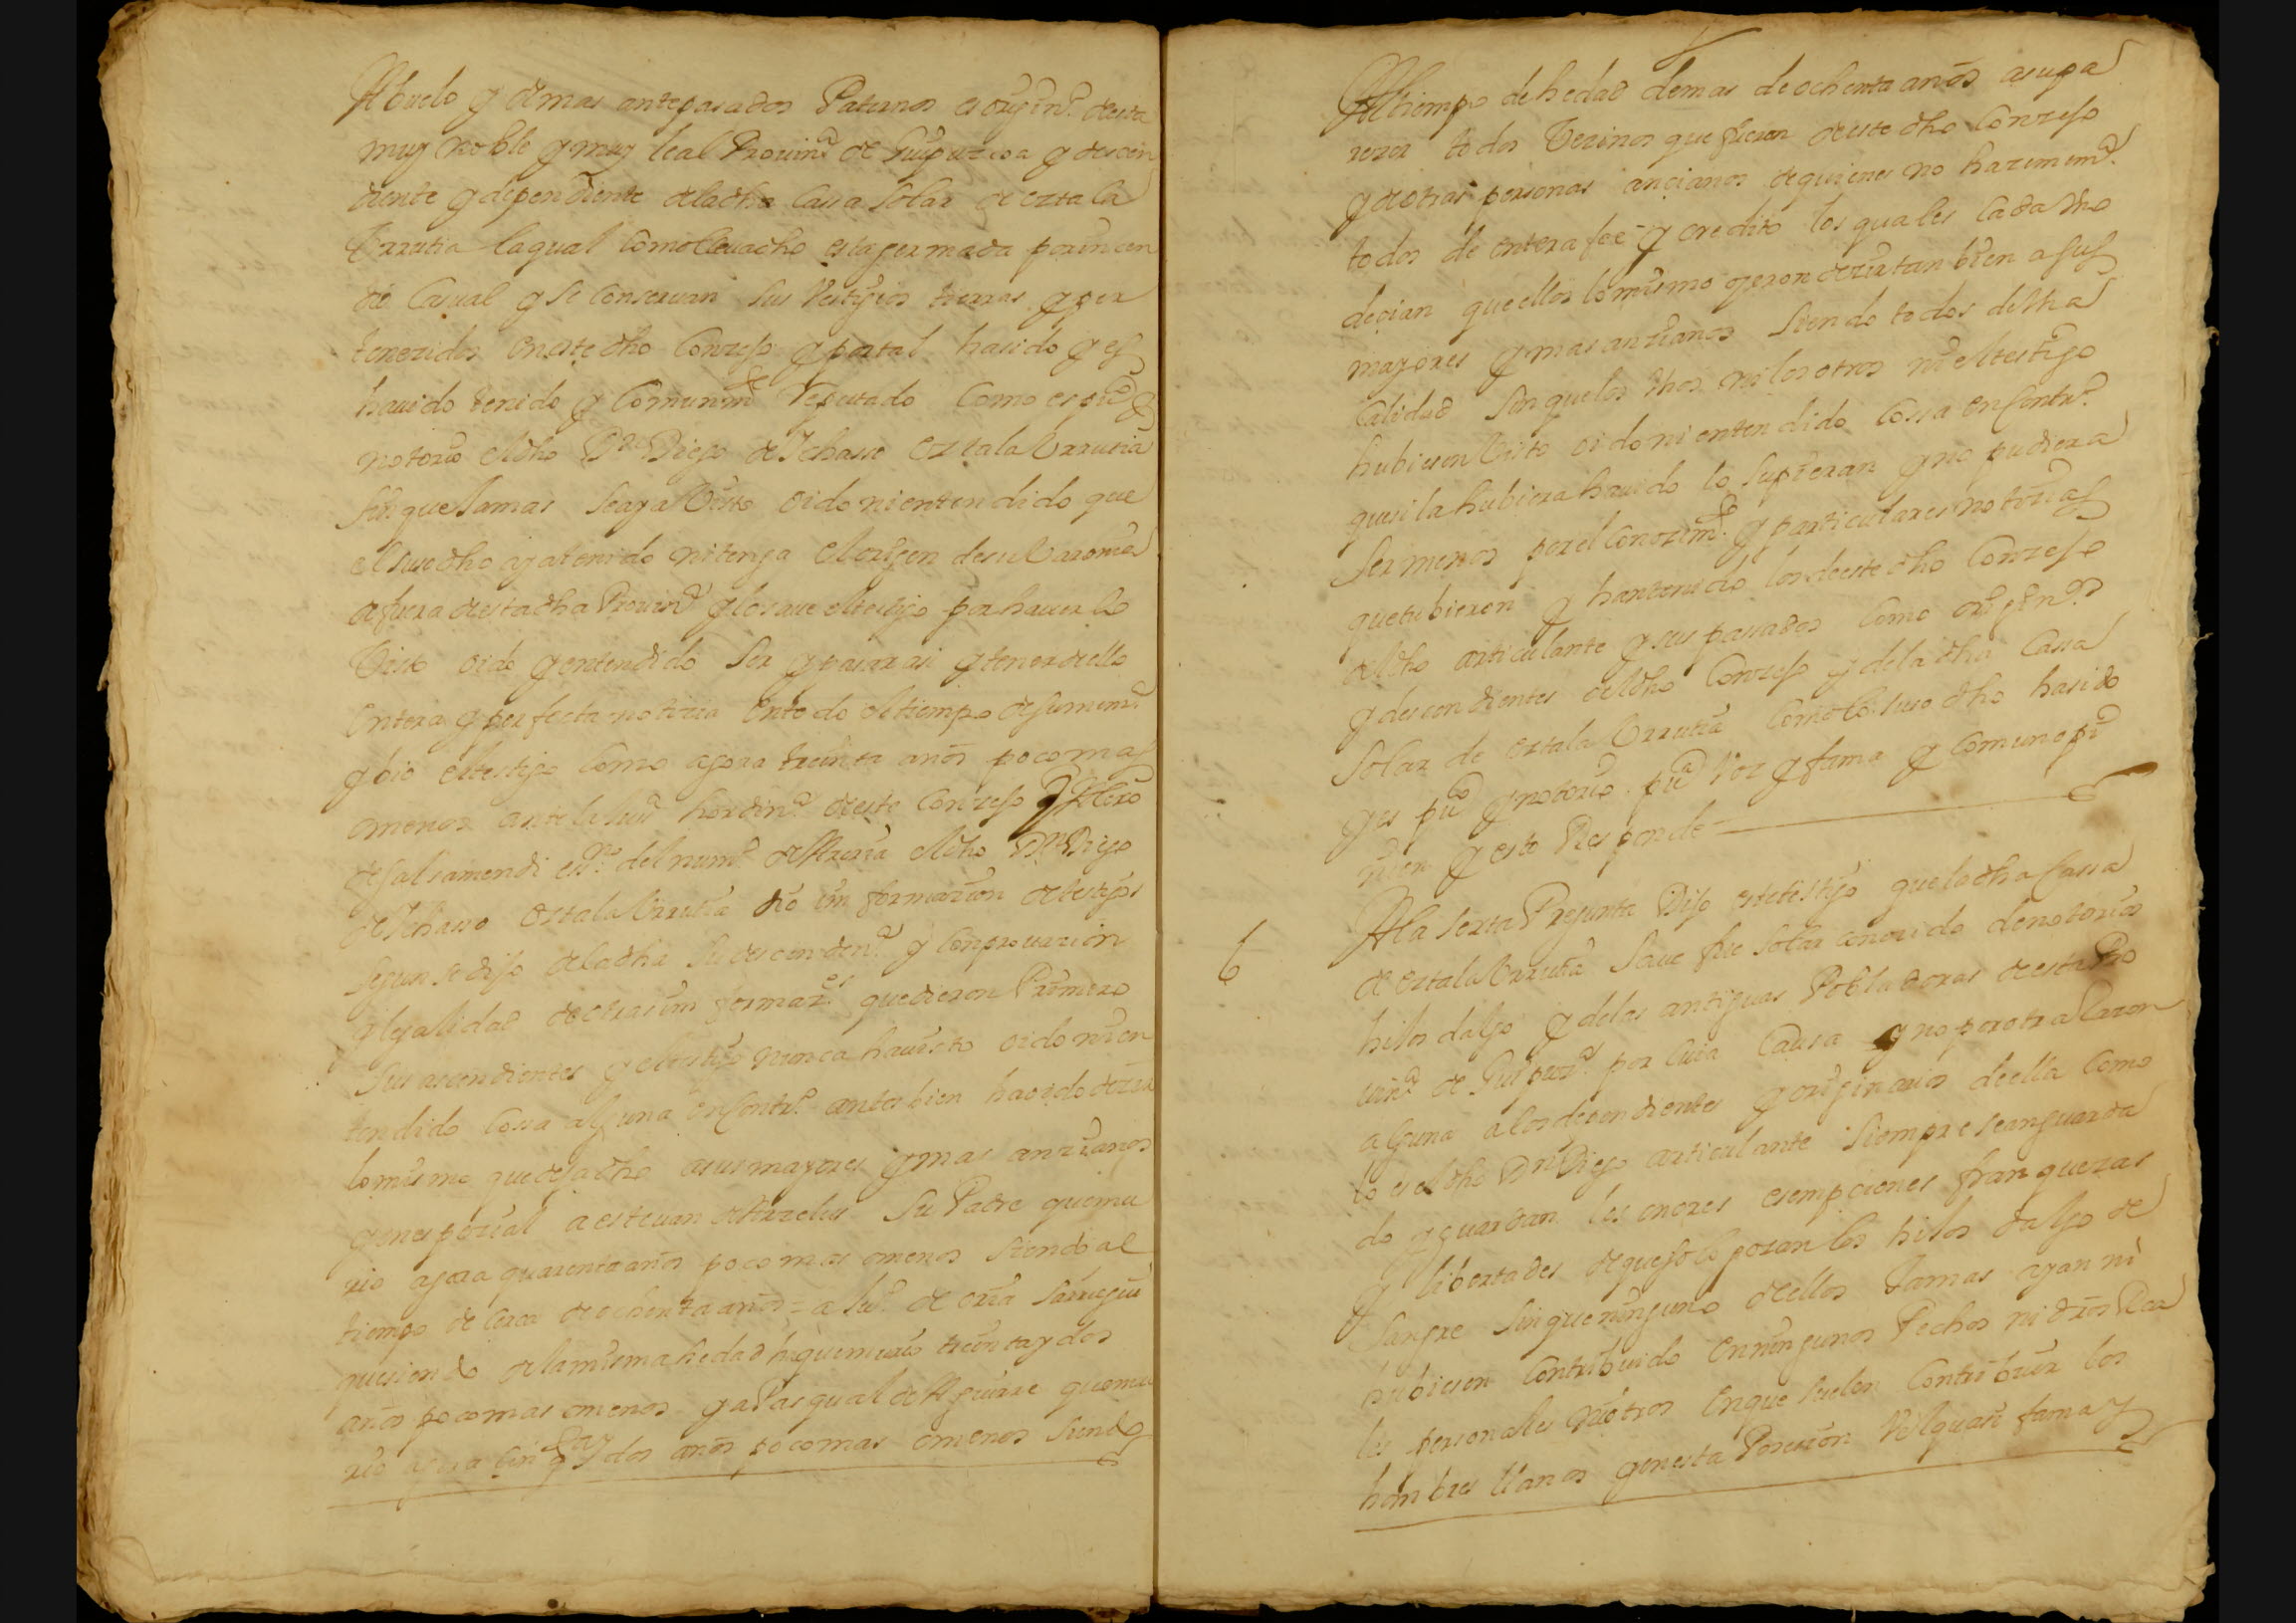 Abuelo y demas antepasados Paternos es origin.º desta
muy noble y muy leal Provin.ª de Guipuzcoa y descen
diente y dependiente de la dha Cassa Solar de eztala
Vrrutia la qual como lleva dho esta yermada por yncen
dio Casual y se conservan sus Vestigios tierras y per
tenecidos en este dho Conzejo y por tal ha sido y es
havido tenido y Comunm.te Reputado como es pu.co &
notorio el dho D.n Diego de Ichasso eztala Vrrutia
sin que Jamas se aya Visto oido ni entendido que
el suso dho aya tenido ni tenga el origen de su Varonia
de fuera desta dha Provin.ª y lo save el testigo por haverlo
Visto oido y entendido ser y pasar asi y tener dello
entera y perfecta noticia en todo el tiempo de su mem.ª
y bio el testigo como agora treinta años poco mas
o menos ante la Just.ª hordin.ª deste Conzejo y
de Galsamendi es.no del num.º de Areria el dho D.n Diego
de Ichasso eztala Vrrutia dio ynformazion de testigos
segun se dijo de la dha su descenden.ª y conprovazion
y legalidad de otras ynformaz.es que dieron Primero
sus ascendientes y el testigo nunca ha visto oido ni en
tendido Cossa alguna en Contr.º antes bien ha oido dezir
lo mismo que deja dho a sus mayores y mas anzianos
y en espezial a estevan de Arzelus su Padre que mu
rio agora quarenta años poco mas o menos siendo al
tiempo de cerca de ochenta años = a Ju.º de oria Sarrigui
que siendo de la misma hedad h que murio treinta y dos
años poco mas o menos y a Pasqual de Aguirre que mu
rio agora cinq.ta y dos años poco mas o menos siendo
Al tiempo de hedad de mas de ochenta años a su pa
rezer todos Vezinos que fueron deste dho Conzejo
y de otras personas ancianos de quienes no haze mem.ª
todos de entera fee y credito los quales Cada Vno
decian que ellos lo mismo oyeron dezir tanbien a sus
mayores y mas anzianos siendo todos de Vna
Calidad sin que los Vnos ni los otros ni el testigo
hubiesen Visto oido ni entendido Cossa en Contr.º
que si la hubiera havido lo supieran y no pudiera
ser menos por el Conozim.to y particulares notizias
que tubieron y han tenido los deeste dho Conzejo
del dho articulante y sus passados como origin.os
y descendientes del dho Conzejo y de la dha Cassa
Solar de eztala Vrrutia como lo suso dho ha sido
y es pu.co y notorio pu.ca Voz y fama y Comun opi
nion y esto Responde
6 A la sexta Pregunta Dijo este testigo que la dha Cassa
de eztala Vrrutia save fue Solar conozido de notorios
hijos dalgo y de las antiguas Pobladoras de esta Pro
vin.ª de Guipuz.ª por Cuia Causa y no por otra Razon
alguna a los dependientes y originarios de ella como
lo es el dho D.n Diego articulante Siempre se an guarda
do y guardan los onores esempciones franquezas
y libertades de que solo gozan los hijos dalgo de
Sangre Sin que ninguno dellos Jamas ayan ni
hubiesen Contribuido en ningunos Pechos ni dros Rea
les personales ni otros en que suelen Contribuir los
hombres llanos y en esta Posesion Vel quasi fama y